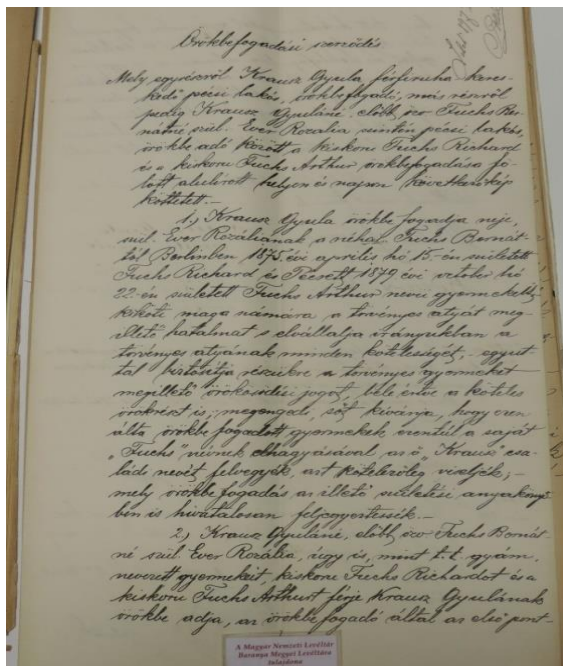 Örökbefogadási szerződés
Mely egyrészről Krausz Gyula férfiruha keres-
kedő pécsi lakós, örökbefogadó, más részről
pedig Krausz Gyuláné előbb özv Fuchs Ber-
nátné szül. Ever Rozália szintén pécsi lakós,
örökbe adó között a kiskorú Fuchs Richard
és a kiskorú Fuchs Arthur örökbefogadása fe-
lett alulírott helyen és napon következőkép
köttetett. —
1.) Krausz Gyula örökbe fogadja neje,
szül. Ever Rozáliának a néhai Fuchs Bernát-
tól Berlinben 1875 évi április hó 15-én született
Fuchs Richard és Pécsett 1879 évi october hó
22-én született Fuchs Arthur nevű gyermekeit,
kiköti maga számára a törvényes atyát meg-
illető hatalmat s elvállalja irányukban a
törvényes atyának minden kötelességét, — egyút-
tal biztosítja részükre a törvényes gyermeket
megillető örökösödési jogot, bele értve a köteles
örökrészt is; megengedi, sőt kívánja, hogy ezen
általa örökbe fogadott gyermekek ezentúl a saját
„Fuchs" nevüknek elhagyásával az ő „Krausz" csa-
ládi nevét felvegyék, azt kötelezőleg viseljék; —
mely örökbefogadás az illető születési anyaköny-
ben is hivatalosan feljegyeztessék. —
2.) Krausz Gyuláné, előbb özv Fuchs Bernát-
né szül. Ever Rozália, úgy is, mint t. t. gyám,
nevezett gyermekeit, kiskorú Fuchs Richardot és a
kiskorú Fuchs Arthurt férje Krausz Gyulának
örökbe adja, az örökbefogadó által az első pont-
A Magyar Nemzeti Levéltár
Baranya Megyei Levéltára
tulajdona